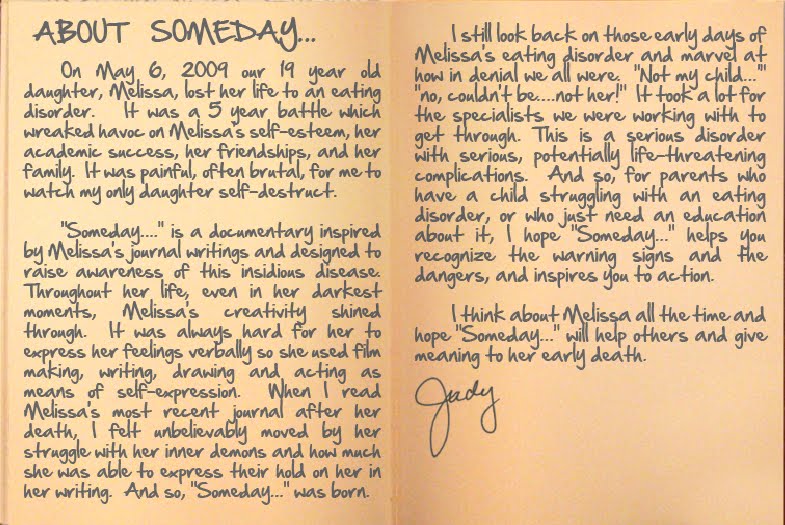 ABOUT SOMEDAY...
On May 6, 2009 our 19 year old
daughter, Melissa, lost her life to an eating
disorder. It was a 5 year battle which
wreaked havoc on Melissa's self-esteem, her
academic success, her friendships, and her
family. It was painful, often brutal, for me to
watch my only daughter self-destruct.
"Someday...." is a documentary inspired
by Melissa's journal writings and designed to
raise awareness of this insidious disease.
Throughout her life, even in her darkest
moments, Melissa's creativity shined
through. It was always hard for her to
express her feelings verbally so she used film
making, writing, drawing and acting as
means of self-expression. When I read
Melissa's most recent journal after her
death, I felt unbelievably moved by her
struggle with her inner demons and how much
she was able to express their hold on her in
her writing. And so, "Someday..." was born.
I still look back on those early days of
Melissa's eating disorder and marvel at
how in denial we all were. "Not my child..."
"no, couldn't be....not her!" It took a lot for
the specialists we were working with to
get through. This is a serious disorder
with serious, potentially life-threatening
complications. And so, for parents who
have a child struggling with an eating
disorder, or who just need an education
about it, I hope "Someday..." helps you
recognize the warning signs and the
dangers, and inspires you to action.
I think about Melissa all the time and
hope "Someday..." will help others and give
meaning to her early death.
Judy